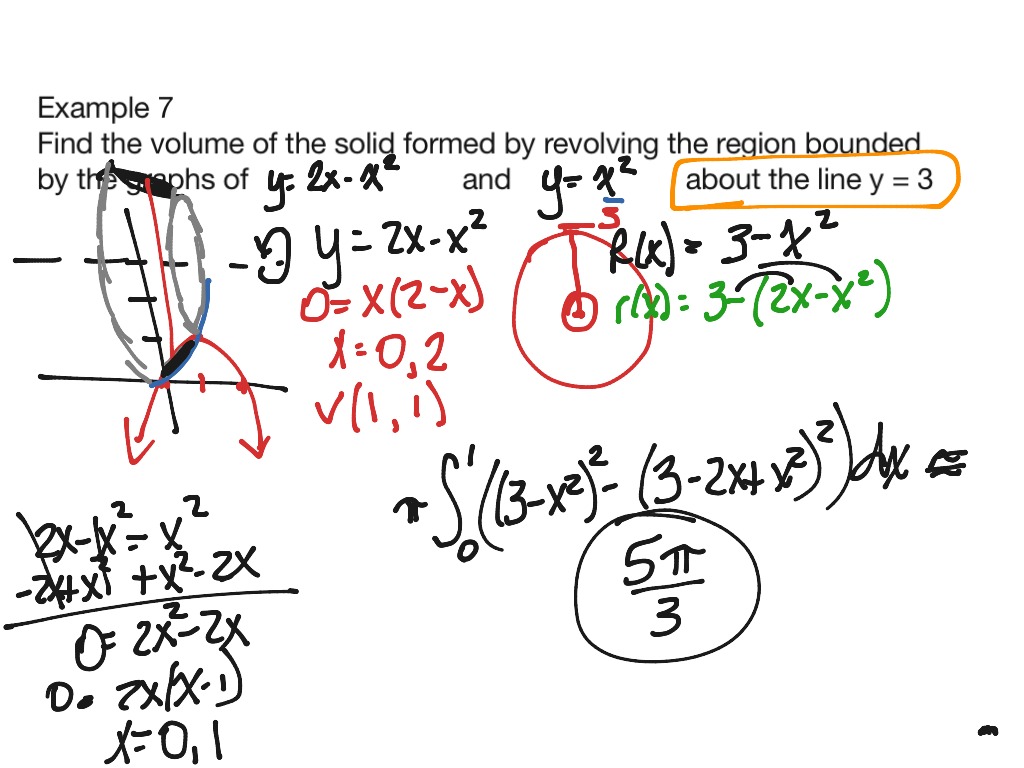 Example 7
Find the volume of the solid formed by revolving the region bounded
by the graphs of y = 2x - x² and y = x² about the line y = 3
y = 2x - x²
0 = x(2-x)
x = 0, 2
v(1, 1)
3
R(x) = 3 - x²
r(x) = 3 - (2x - x²)
π ∫₀¹ ((3-x²)² - (3-2x+x²)²) dx =
5π/3
2x - x² = x²
-2x + x² + x² - 2x
0 = 2x² - 2x
0 = 2x(x-1)
x = 0, 1